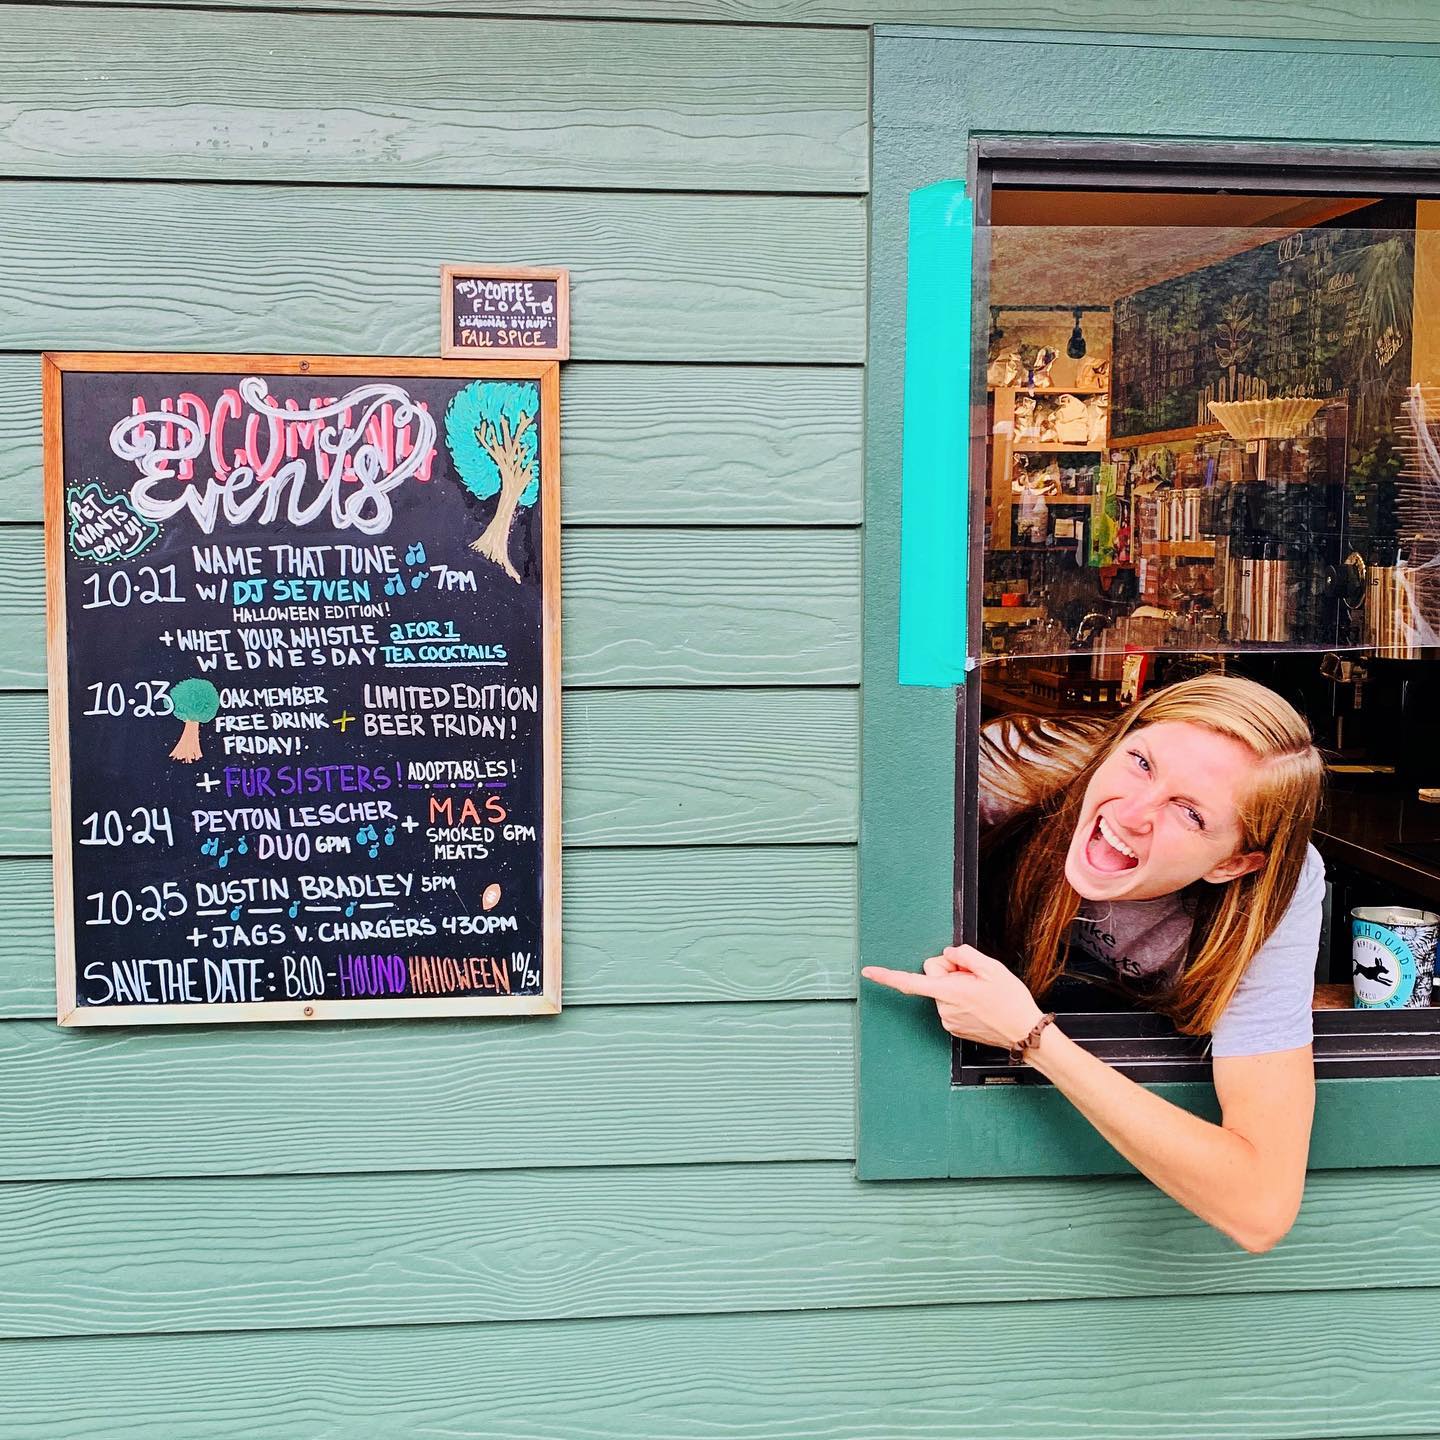 TRY A COFFEE
FLOAT
SEASONAL SYRUP:
FALL SPICE
UPCOMING
Events
PET
WANTS
DAILY!
10·21 NAME THAT TUNE
W/ DJ SE7VEN 7PM
HALLOWEEN EDITION!
+ WHET YOUR WHISTLE 2 FOR 1
WEDNESDAY TEA COCKTAILS
10·23 OAK MEMBER
FREE DRINK
FRIDAY!
+ LIMITED EDITION
BEER FRIDAY!
+ FUR SISTERS! ADOPTABLES!
10·24 PEYTON LESCHER
DUO 6PM
+ MAS
SMOKED 6PM
MEATS
10·25 DUSTIN BRADLEY 5PM
+ JAGS V. CHARGERS 430PM
SAVE THE DATE: BOO-HOUND HALLOWEEN 10/31
like
HOUND
NEPTUNE
BEACH
BAR